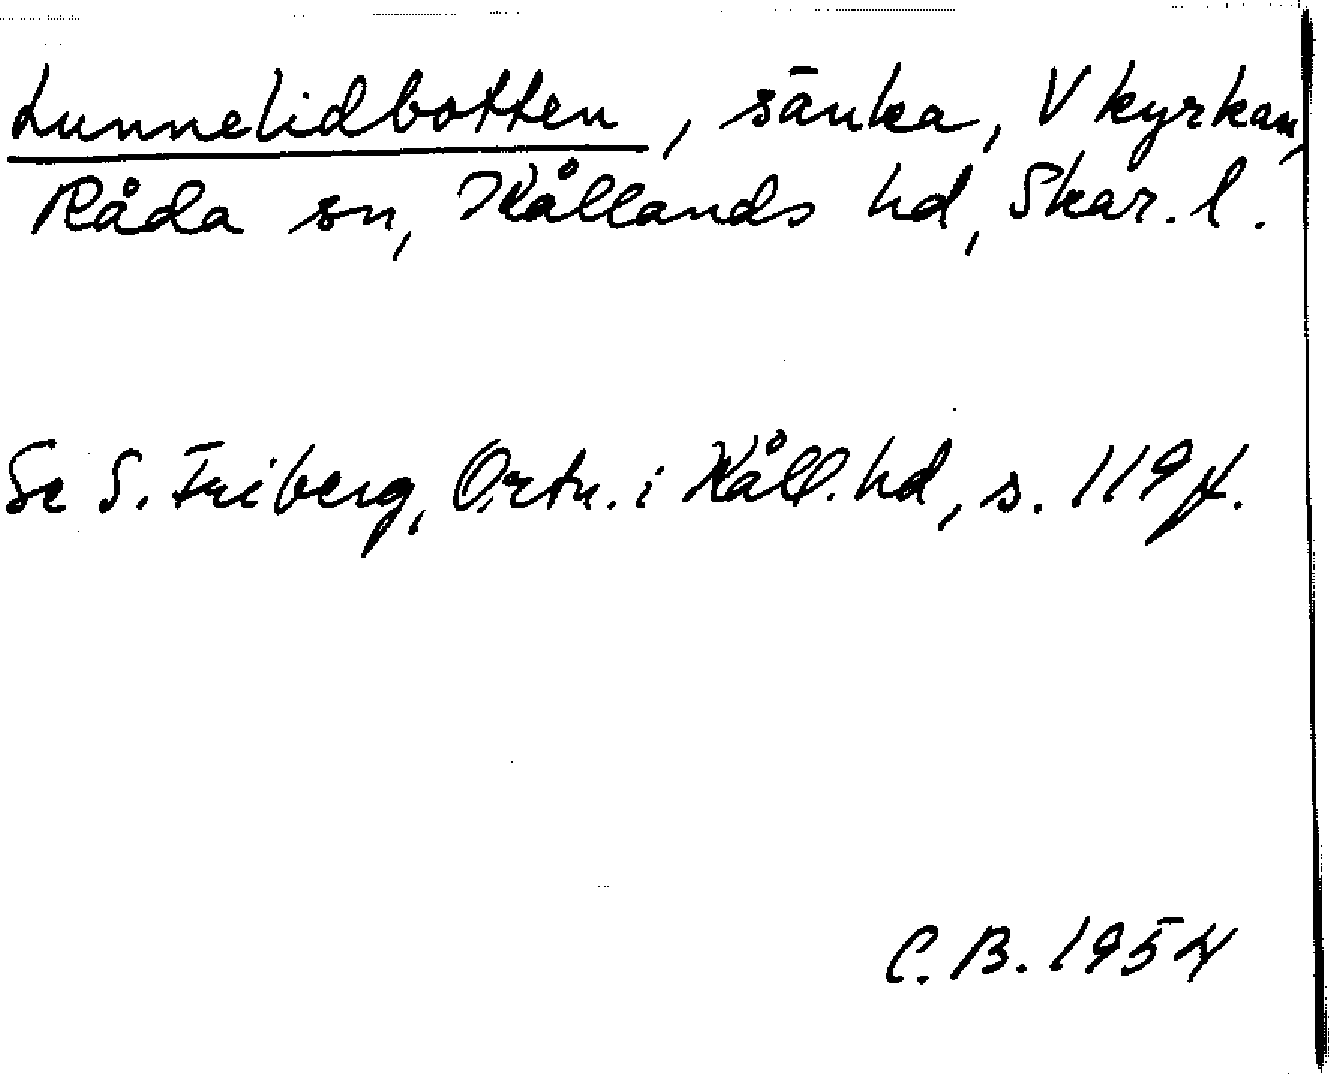 Lunnelidbotten, sänka, V kyrkan,
Råda sn, Kållands hd, Skar. l.
Se S. Friberg, Ortn. i Kåll. hd, s. 119 f.
C. B. 1954